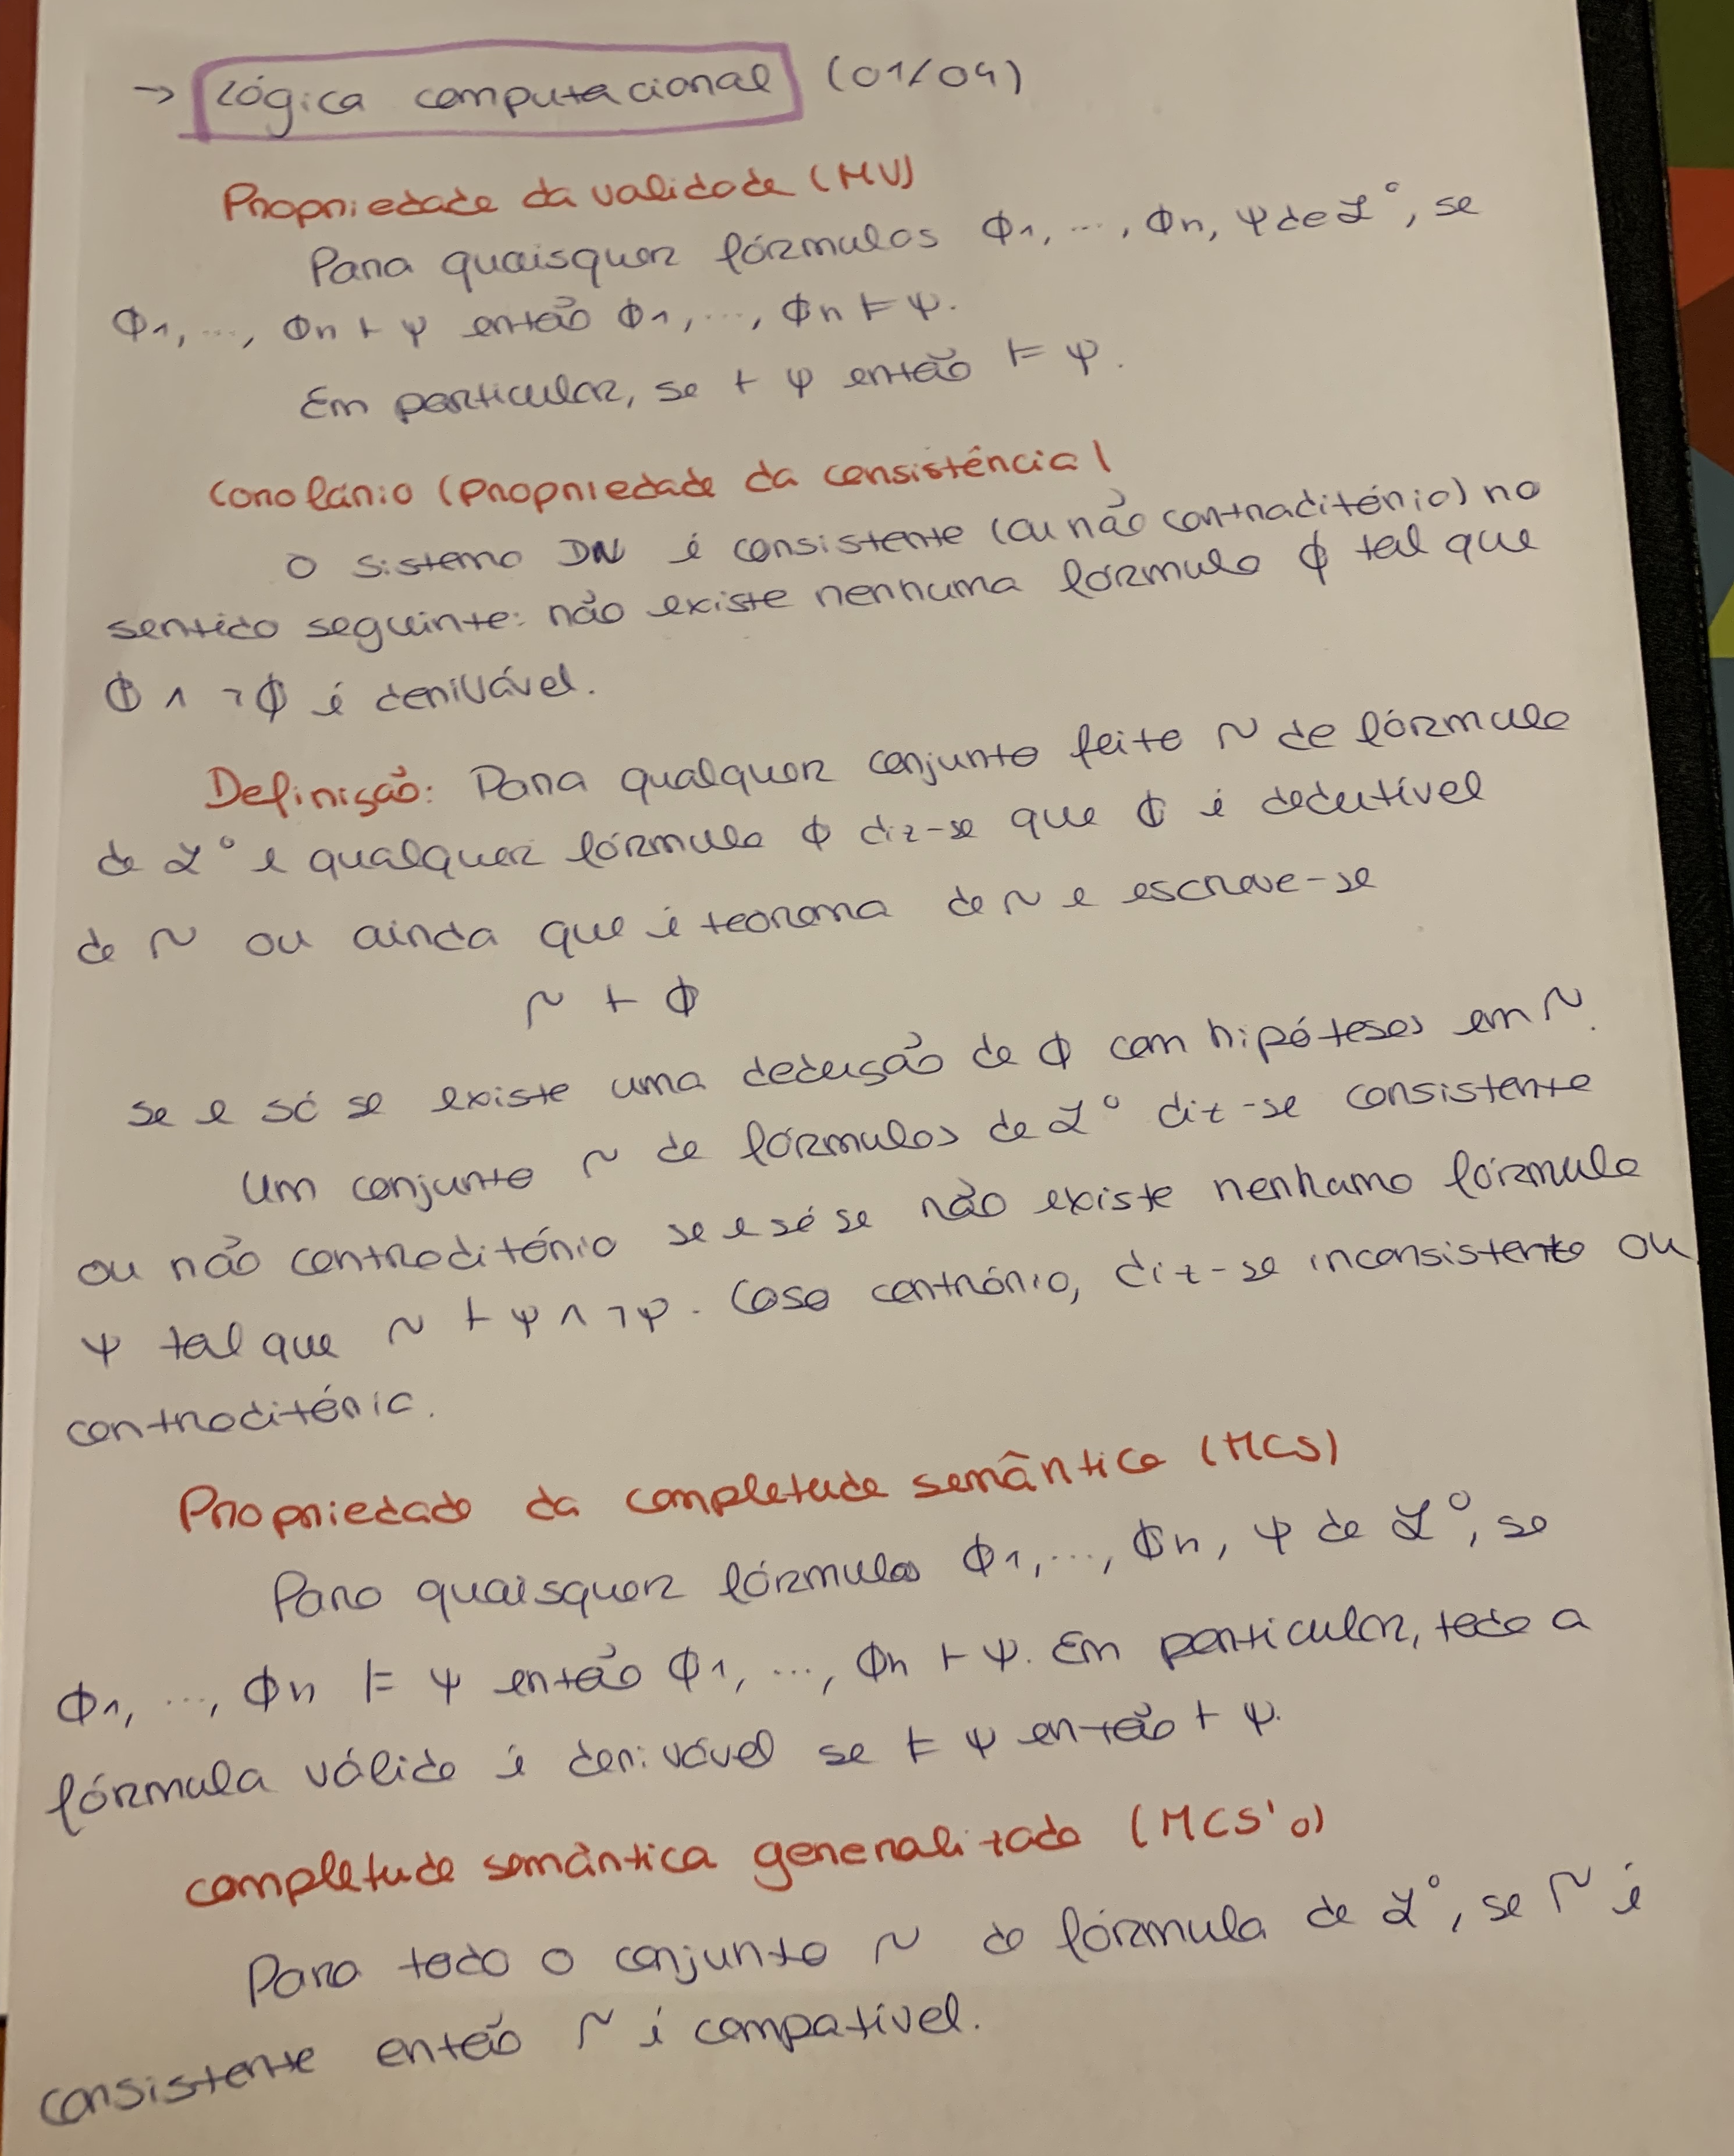 → Lógica computacional (01/04)
Propriedade da validade (MV)
Para quaisquer fórmulas ϕ1, ..., ϕn, ψ de L°, se
ϕ1, ..., ϕn ⊢ ψ então ϕ1, ..., ϕn ⊨ ψ.
Em particular, se ⊢ ψ então ⊨ ψ.
Corolário (Propriedade da consistência)
O sistema DN é consistente (ou não contraditório) no
sentido seguinte: não existe nenhuma fórmula ϕ tal que
ϕ ∧ ¬ϕ é derivável.
Definição: Para qualquer conjunto feito ~ de fórmula
de L° e qualquer fórmula ϕ diz-se que ϕ é dedutível
de ~ ou ainda que é teorema de ~ e escreve-se
~ ⊢ ϕ
se e só se existe uma dedução de ϕ com hipóteses em ~.
Um conjunto ~ de fórmulas de L° diz-se consistente
ou não contraditório se e só se não existe nenhuma fórmula
ψ tal que ~ ⊢ ψ ∧ ¬ψ. Caso contrário, diz-se inconsistente ou
contraditório.
Propriedade da completude semântica (MCS)
Para quaisquer fórmulas ϕ1, ..., ϕn, ψ de L°, se
ϕ1, ..., ϕn ⊨ ψ então ϕ1, ..., ϕn ⊢ ψ. Em particular, toda a
fórmula válida é derivável se ⊨ ψ então ⊢ ψ.
completude semântica generalizada (MCS'0)
Para todo o conjunto ~ de fórmula de L°, se ~ é
consistente então ~ é compatível.